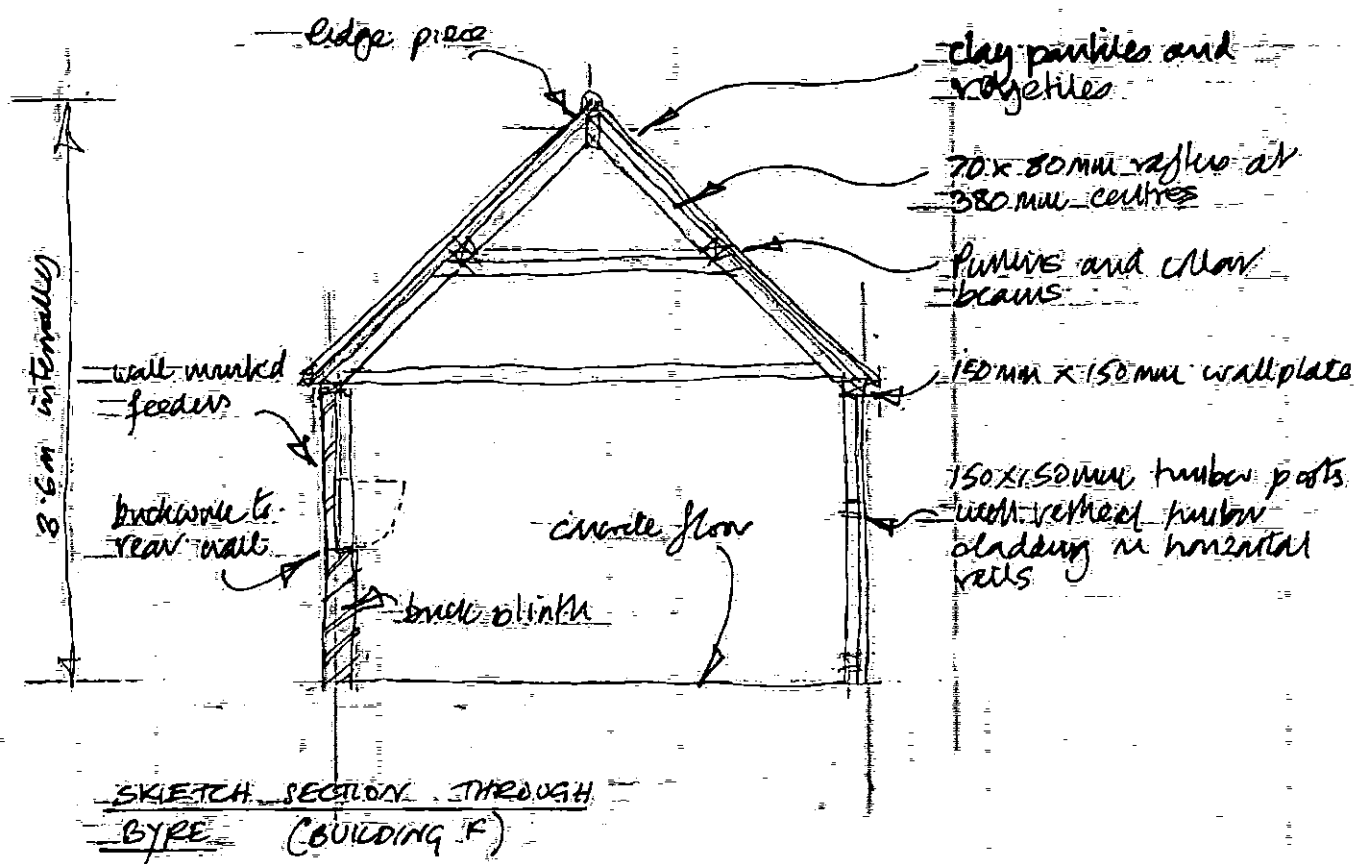 ridge piece
clay pantiles and
ridgetiles
70 x 80mm rafters at
380mm centres
Purlins and collar
beams
150mm x 150mm wallplate
150x150mm timber posts
with vertical timber
cladding on horizontal
rails
wall mounted
feeders
brickwork to
rear wall
brick plinth
concrete floor
(overall)
SKETCH SECTION THROUGH
BYRE (BUILDING F)